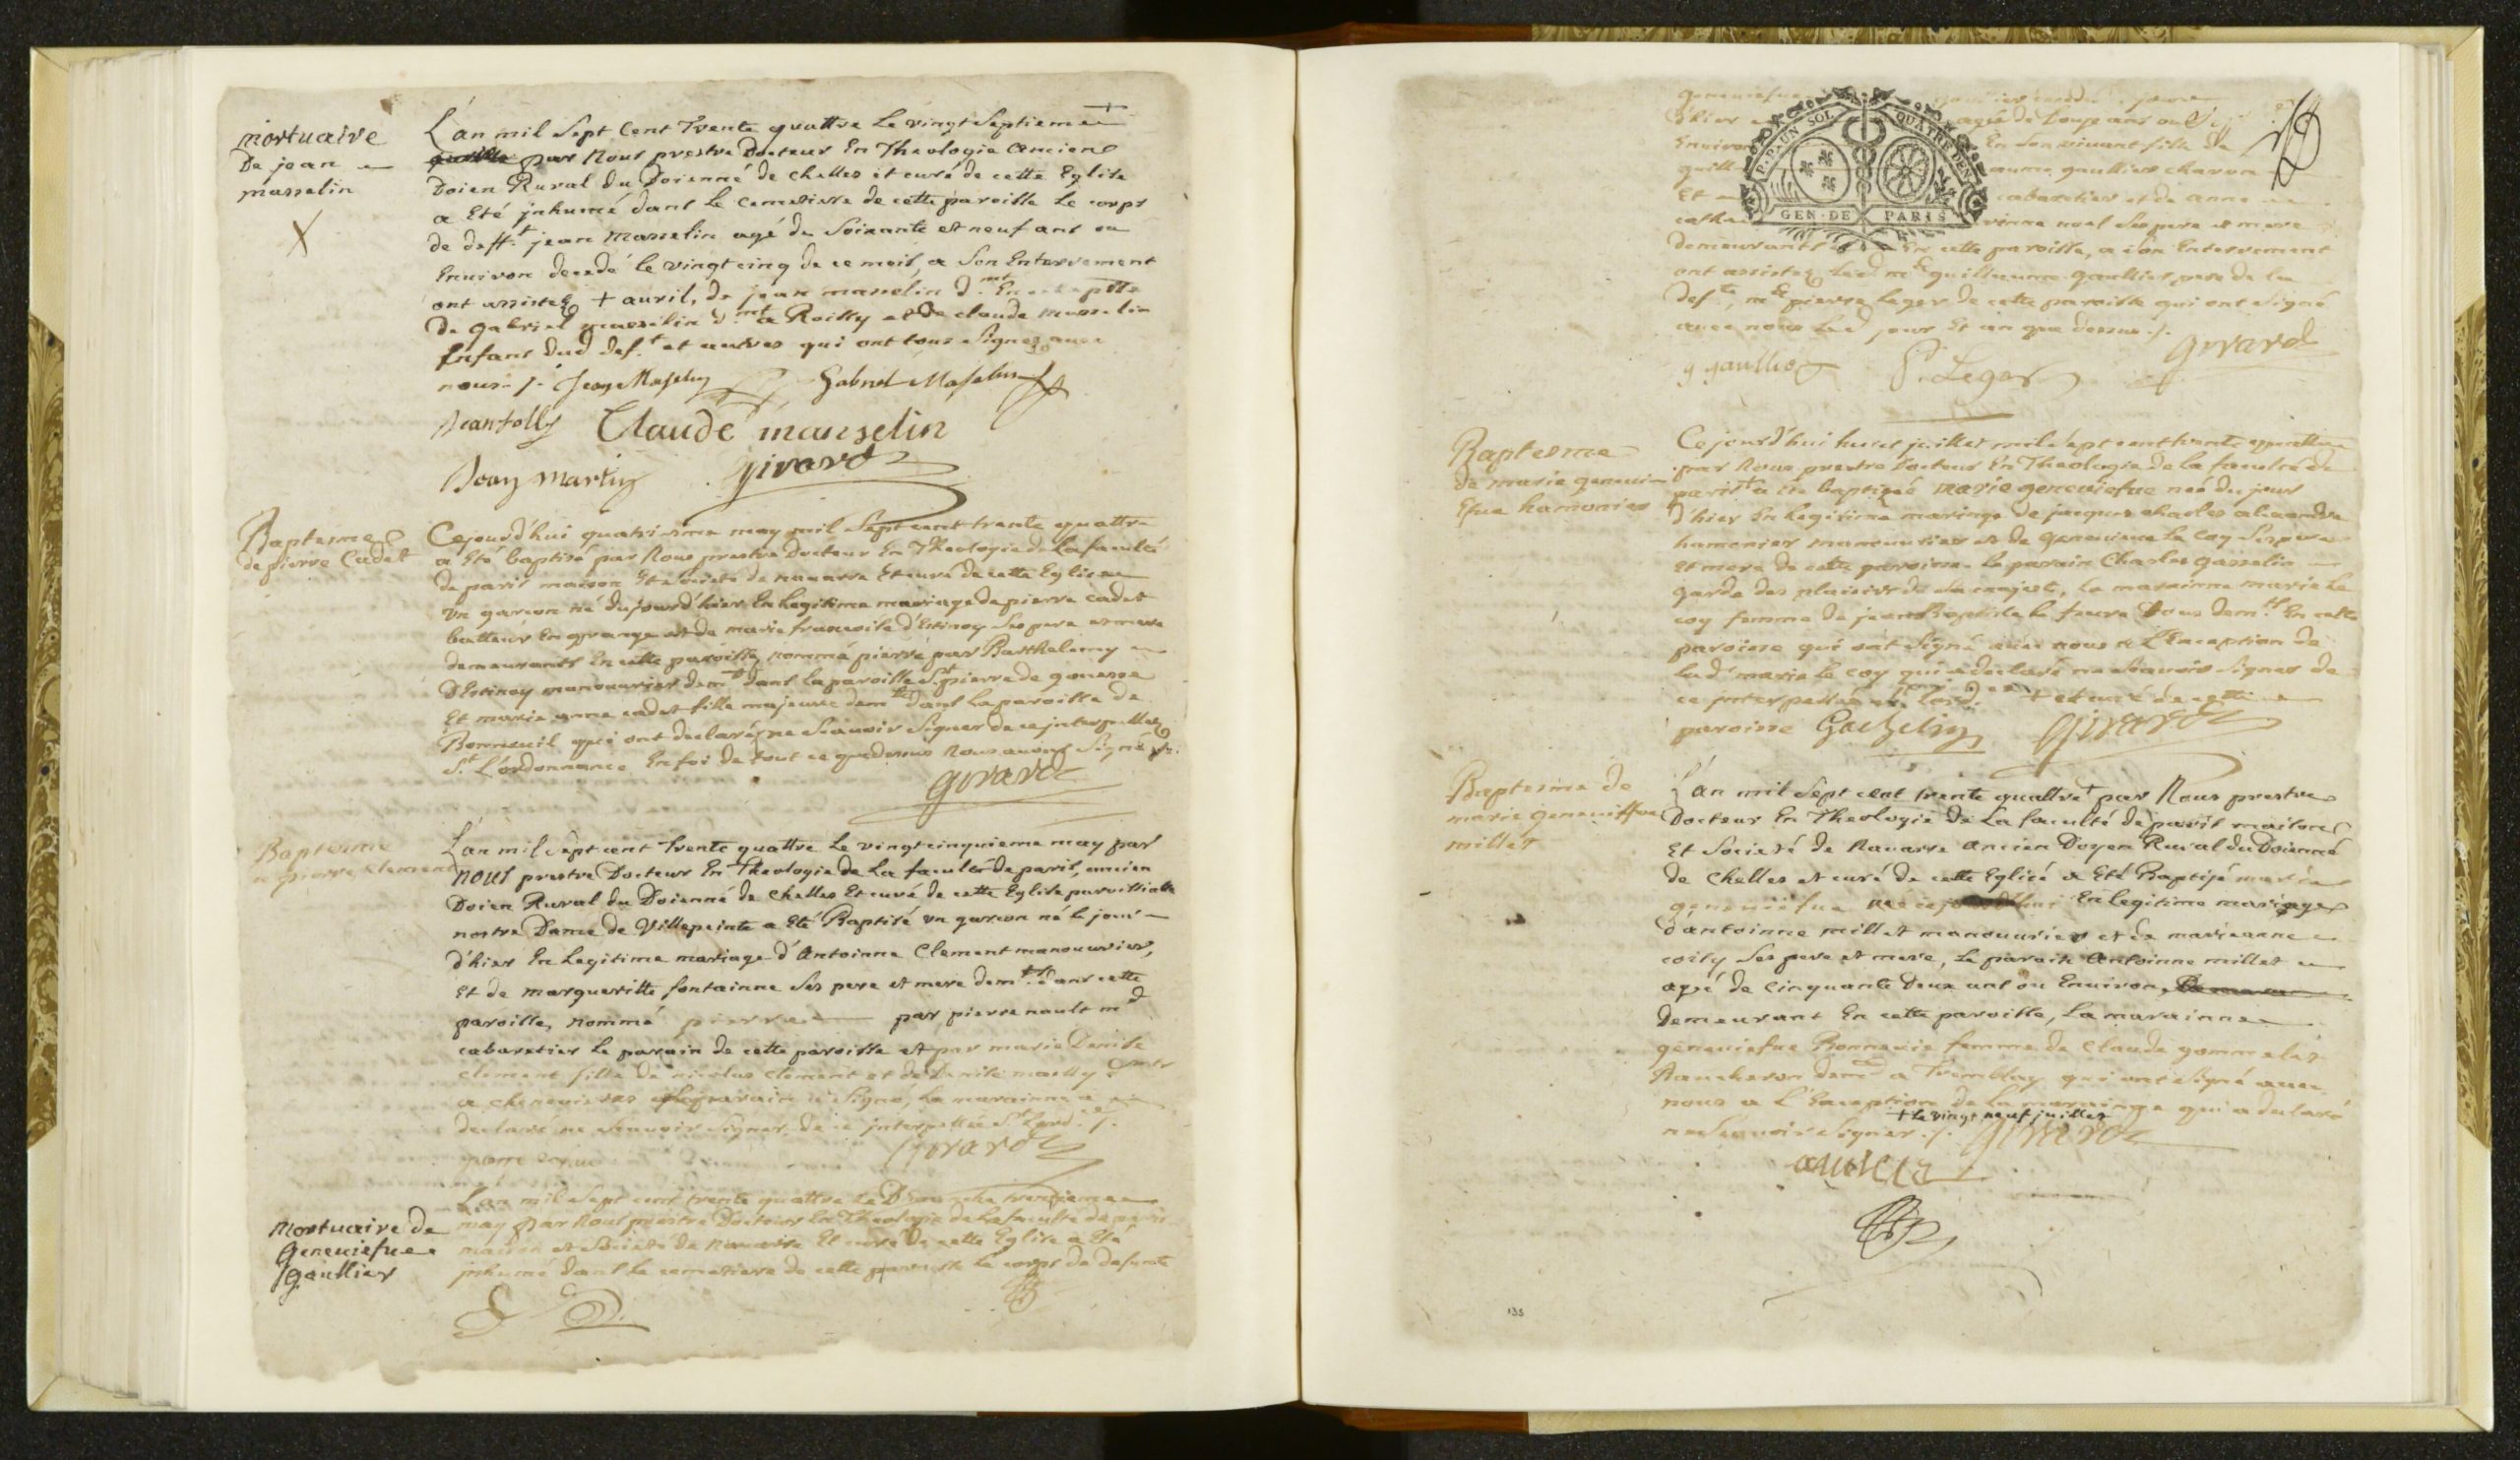 mortuaire
De jean
masselin
X
L'an mil Sept Cent Trente quattre Le vingt Septieme +
par Nous prestre Docteur En Theologie Ancien
Doien Rural du Doienné de Chelles et curé de cette Eglise
a Eté jnhumé dans Le Cemetierre de cette paroisse Le corps
de deff.t jean Masselin agé de Soixante et neuf ans ou
Enuiron decedé le vingt cinq de ce mois, a Son Enterrement
ont assistez + auril, de jean masselin d.mt En
De gabriel masselin d.mt a Roissy et de claude masselin
Enfans dud def.t et autres qui ont tous Signez auec
nous ./. Jean Masselin Gabriel Masselin
Jean folly Claude mauselin
Jean Martin girard
Baptesme
de pierre Cadet
Cejourd'hui quatriesme may mil Sept cent trente quattre
a Eté baptisé par Nous prestre Docteur En Theologie de La faculté
de paris maison Et Societé de nauarre Et curé de cette Eglise
Vn garcon né du jourd'hier En Legitime mariage de pierre cadet
batteur En grange et de marie francoise d'Estinoy Ses pere et mere
demeurants En cette paroisse, nommé pierre par Barthelemy
D'Estinoy manouurier dem.t dans La paroisse St pierre de gonesse
Et marie anne cadet fille majeure dem.te dans La paroisse de
Bonneuil qui ont declaré ne Scauoir Signer de ce jnterpellez
S.t L'ordonnance En foi de tout ce que dessus Nous auons Signé ./.
girard
Baptesme
de pierre Clement
L'an mil Sept cent trente quattre Le vingt cinquieme may par
nous prestre Docteur En Theologie de La faculté de paris, ancien
Doien Rural du Doienné de Chelles Et curé de cette Eglise paroissialle
nostre Dame de Villepinte a Eté Baptisé vn garcon né le jour
d'hier En Legitime mariage d'Antoinne Clement manouurier,
Et de margueritte fontainne Ses pere et mere dem.ts dans cette
paroisse, nommé pierre par pierre nault m.d
cabaretier Le parain de cette paroisse et par marie Denise
clement fille de nicolas clement et de Denise mailly
a cheneuieres Le parain a Signé, La marainne a
declaré ne Scauoir Signer, de ce jnterpellée S.t L'ord.ce ./.
girard
Mortuaire de
Geneuiefue
gaultier
L'an mil Sept cent trente quattre Le Dimanche
may par Nous prestre Docteur En Theologie de La faculté de paris
maison et Societé de Nauarre Et curé de cette Eglise a Eté
jnhumé dans Le cemetierre de cette paroisse Le corps de defunte
geneuiefue
d'hier agée de douze ans ou
Enuiron En Son viuant fille de
guill aume gaultier charon
Et cabaretier et de anne
cathe rinne noel Ses pere et mere
demeurants En cette paroisse, a Son Enterrement
ont assistez Led m.e guillaume gaultier pere de La
def.te, m.e pierre Leger de cette paroisse qui ont Signé
auec nous Led jour Et an que dessus ./.
g gaultier P. Leger girard
P. P. D'UN SOL QUATRE DEN.
GEN. DE PARIS
Baptesme
de marie geneui
Efue hamonier
Cejourd'hui huict juillet mil Sept cent trente quattre
par Nous prestre Docteur En Theologie de La faculté de
paris + a Eté baptizée marie geneuiefue née du jour
d'hier En Legitime mariage de jacques charles alexandre
hamonier manouurier et de geneuieue Le Coy Ses pere
Et mere de cette paroisse. Le parain Charles gasselin
garde des plaisirs de Sa majesté, La marainne marie Le
coy femme de jean Baptiste Le feure Tous dem.ts En cette
paroisse qui ont Signé auec nous a L'Exception de
lad marie Le coy qui a declaré ne Scauoir Signer de
ce jnterpellée S.t L'ord.ce + et curé de cette
paroisse Gasselin girard
Baptesme de
marie geneuieffue
millet
L'an mil Sept cent trente quattre + par Nous prestre
Docteur En Theologie de La faculté de paris maison
Et Societé de Nauarre Ancien Doyen Rural du Doienné
de Chelles et curé de cette Eglise a Eté Baptisé marie
geneuiefue née cejourd'hui En Legitime mariage
d'antoinne millet manouurier et de marie anne
coily Ses pere et mere, Le parain Antoinne millet
agé de Cinquante Deux ans ou Enuiron,
Demeurant En cette paroisse, La marainne
geneuiefue Bonneuie femme de Claude gommelet
Vaucheron dem.t a Tremblay qui ont Signé auec
nous a L'Exception de La marainne qui a declaré
+ Le vingt neuf juillet
ne Scauoir Signer ./. girard
135